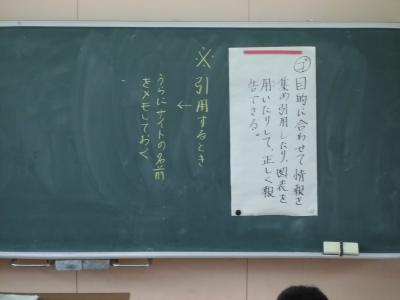 目的に合わせて情報を
集め引用したり、図表を
用いたりして、正しく報
告できる。
※引用するとき
↓
うらにサイトの名前
をメモしておく